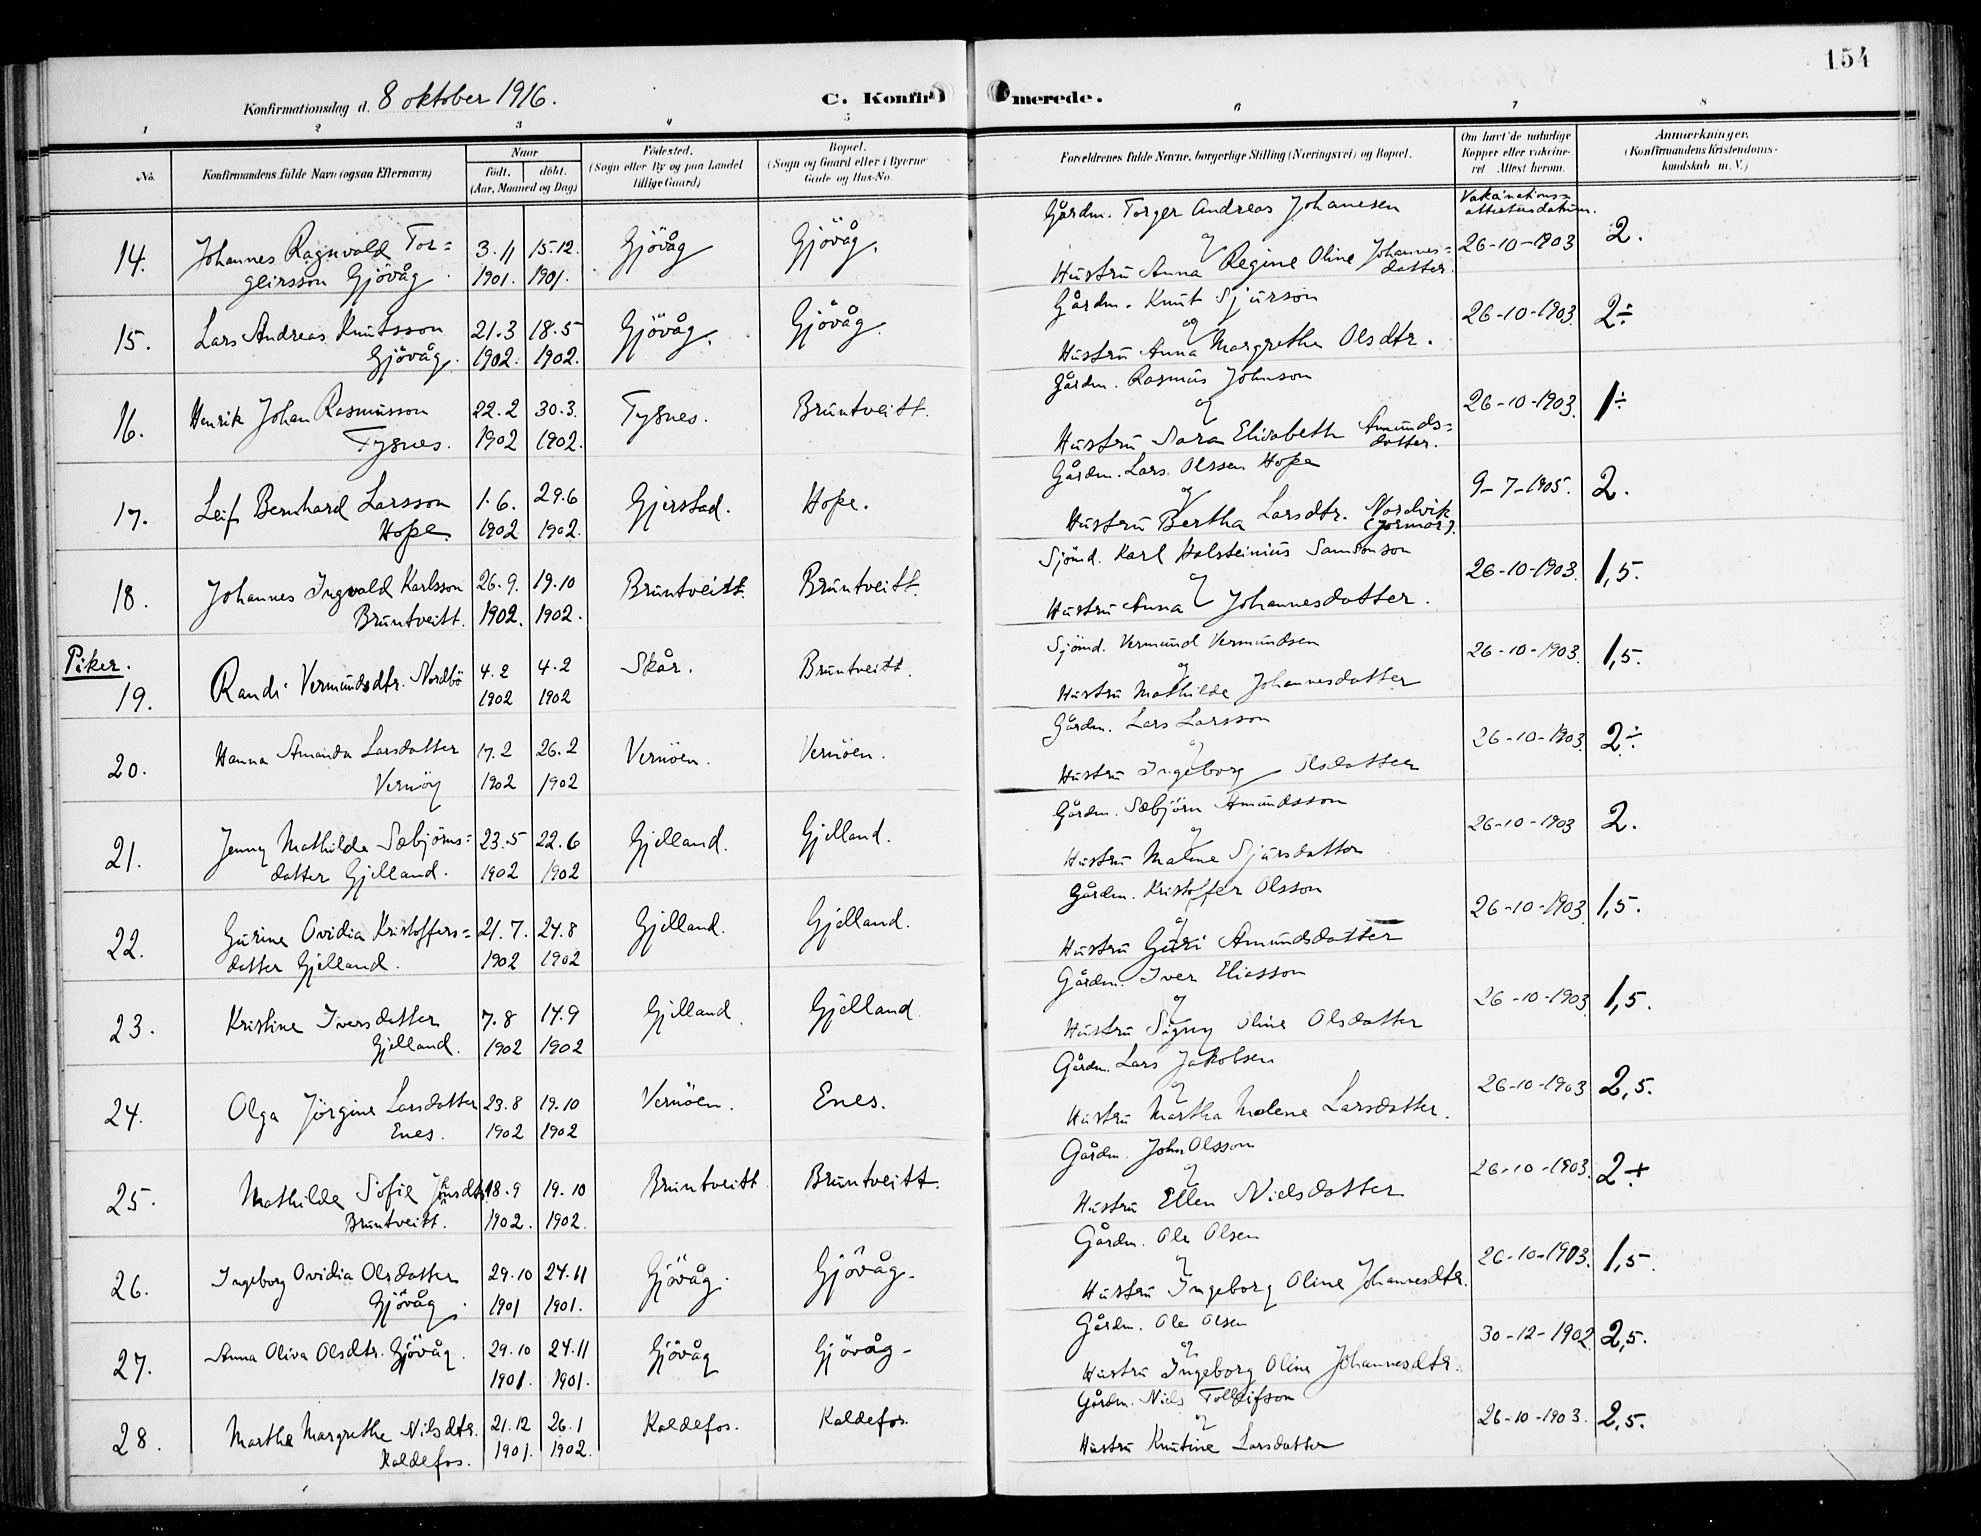 154
Konfirmationsdag d. 8 oktober 1916.
C. Konfirmerede.
1 2 3 4 5 6 7 8
No.
Konfirmandens fulde Navn (ogsaa Efternavn)
Naar
født. døbt.
(Aar, Maaned og Dag)
Fødested.
(Sogn eller By og paa Landet
tillige Gaard)
Bopæl.
(Sogn og Gaard eller i Byerne
Gade og Hus-No.
Forældrenes fulde Navne, borgerlige Stilling (Næringsvei) og Bopæl.
Om havt de naturlige
Kopper eller vakcine-
ret Attest herom.
Anmærkninger.
(Konfirmandens Kristendoms-
kundskab m. V.)
Vakcinations=
attestensdatum.
14. Johannes Ragnvald Tor= 3.11 15.12. Gjövåg Gjövåg. Gårdm. Torger Andreas Johanesen 26-10-1903 2.
geirsson Gjövåg. 1901. 1901. og Hustrü Anna Regine Oline Johannes=
datter.
15. Lars Andreas Knütsson 21.3 18.5 Gjövåg. Gjövåg. Gårdm. Knüt Sjürson 26-10-1903. 2÷
Gjövåg. 1902. 1902. og Hustrü Anna Margrethe Olsdtr.
16. Henrik Johan Rasmüsson 22.2 30.3. Tysnes. Brüntveitt. Gårdm. Rasmüs Johnson 26-10-1903. 1÷
Tysnes. 1902 1902. og Hustrü Sara Elisabeth Amünds=
datter.
17. Leif Bernhard Larsson 1.6. 29.6 Gjerstad. Hope. Gårdm. Lars Olssen Hope 9-7-1905. 2.
Hope. 1902 1902. og Hüstrü Bertha Larsdtr. Nordvik
18. Johannes Ingvald Karlsson 26.9. 19.10 Brüntveitt. Brüntveitt. Sjömd. Karl Holsteiniüs Samsonson 26-10-1903. 1,5.
Brüntveitt. 1902. 1902. og Hüstrü Anna Johannesdatter.
Piker.
19. Randi Vermündsdtr. Nordbö 4.2 4.2 Skår. Brüntveitt. Sjömd. Vermünd Vermündsen 26-10-1903. 1,5.
1902 1902 og Hüstrü Mathilde Johannesdatter
20. Hanna Amanda Larsdatter 17.2 26.2 Vernöen. Vernöen. Gårdm. Lars Larsson 26-10-1903. 2÷
Vernöy 1902 1902 og Hüstrü Ingeborg Olsdatter
21. Jenny Mathilde Sæbjörns= 23.5 22.6 Gjelland. Gjelland. Gårdm. Sæbjörn Amündsson 26-10-1903 2.
datter Gjelland. 1902 1902 og Hüstrü Malene Sjürsdatter
22. Gürine Ovidia Kristoffers= 21.7. 24.8 Gjelland. Gjelland. Gårdm. Kristoffer Olsson 26-10-1903. 1,5.
datter Gjelland. 1902 1902 og Hüstrü Guri Amündsdatter
23. Kristine Iversdatter 7.8 14.9 Gjelland. Gjelland Gårdm. Iver Eliasson 26-10-1903. 1,5.
Gjelland. 1902 1902 og Hüstrü Signy Oline Olsdatter
24. Olga Jörgine Larsdatter 23.8 19.10 Vernöen. Enes. Gårdm. Lars Jakobsen 26-10-1903 2,5.
Enes. 1902 1902 og Hüstrü Martha Malene Larsdatter.
25. Mathilde Sofie Jonsdtr. 18.9 19.10 Brüntveitt Brüntveitt. Gårdm. John Olsson 26-10-1903. 2+
Brüntveitt. 1902. 1902. og Hüstrü Ellen Nielsdatter
26. Ingeborg Ovidia Olsdatter 29.10 24.11 Gjövåg. Gjövåg. Gårdm. Ole Olsen 26-10-1903. 1,5.
Gjövåg. 1901 1901. og Hüstrü Ingeborg Oline Johannesdtr.
27. Anna Oliva Olsdtr. Gjövåg. 29.10 24.11 Gjövåg Gjövåg. Gårdm. Ole Olsen 30-12-1902. 2,5.
1901. 1901. og Hüstrü Ingeborg Oline Johannesdtr.
28. Martha Margrethe Nilsdtr. 21.12 26.1 Kaldefos. Kaldefos. Gårdm. Niels Tolleifson 26-10-1903. 2,5.
Kaldefos. 1901. 1902. og Hüstrü Knütine Larsdatter